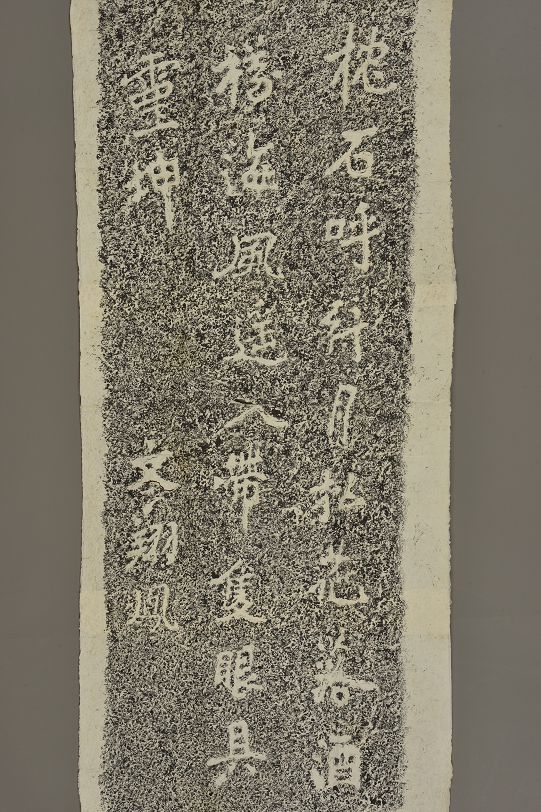 枕石呼月花落酒
樽海風遥入帶隻眼具
靈坤 文翔鳳